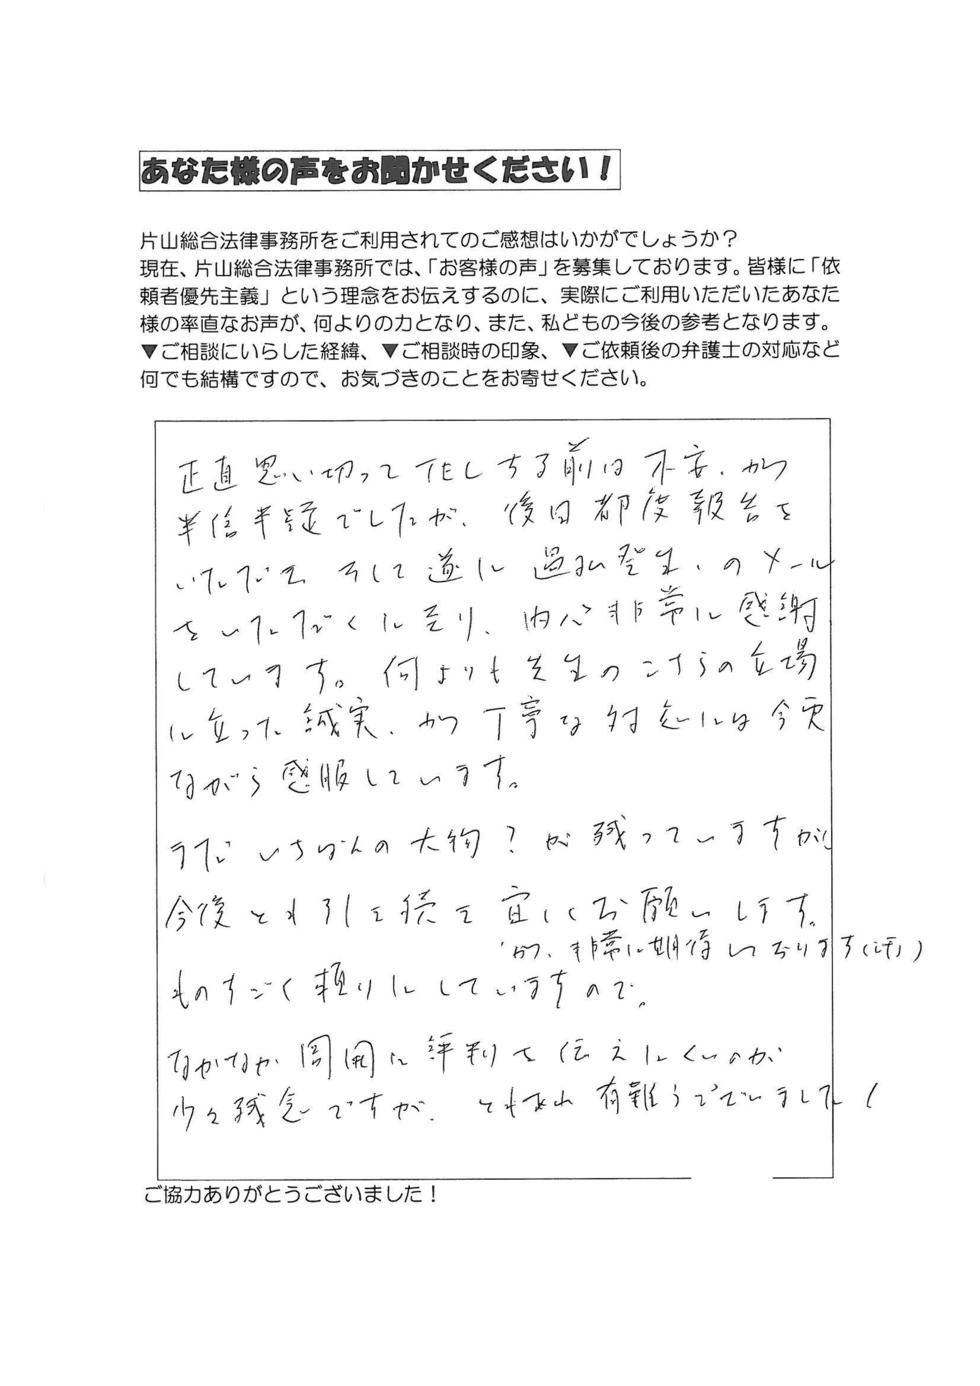 あなた様の声をお聞かせください！
片山総合法律事務所をご利用されてのご感想はいかがでしょうか？
現在、片山総合法律事務所では、「お客様の声」を募集しております。皆様に「依
頼者優先主義」という理念をお伝えするのに、実際にご利用いただいたあなた
様の率直なお声が、何よりの力となり、また、私どもの今後の参考となります。
▼ご相談にいらした経緯、▼ご相談時の印象、▼ご依頼後の弁護士の対応など
何でも結構ですので、お気づきのことをお寄せください。
正直思い切って化しちる前は不安、かつ
半信半疑でしたが、後日都度報告を
いただき そして遂に過払発生、のメール
をいただくに至り、内心非常に感謝
しています。何よりも先生のこちらの立場
に立った誠実、かつ丁寧な対応には今更
ながら感服しています。
まだいちばんの大物？が残っていますが、
今後とも引き続き宜しくお願いします。
かつ、非常に期待しております(汗)
ものすごく頼りにしていますので。
なかなか周囲に評判を伝えにくいのが
少々残念ですが、ともあれ有難うございました！
ご協力ありがとうございました！